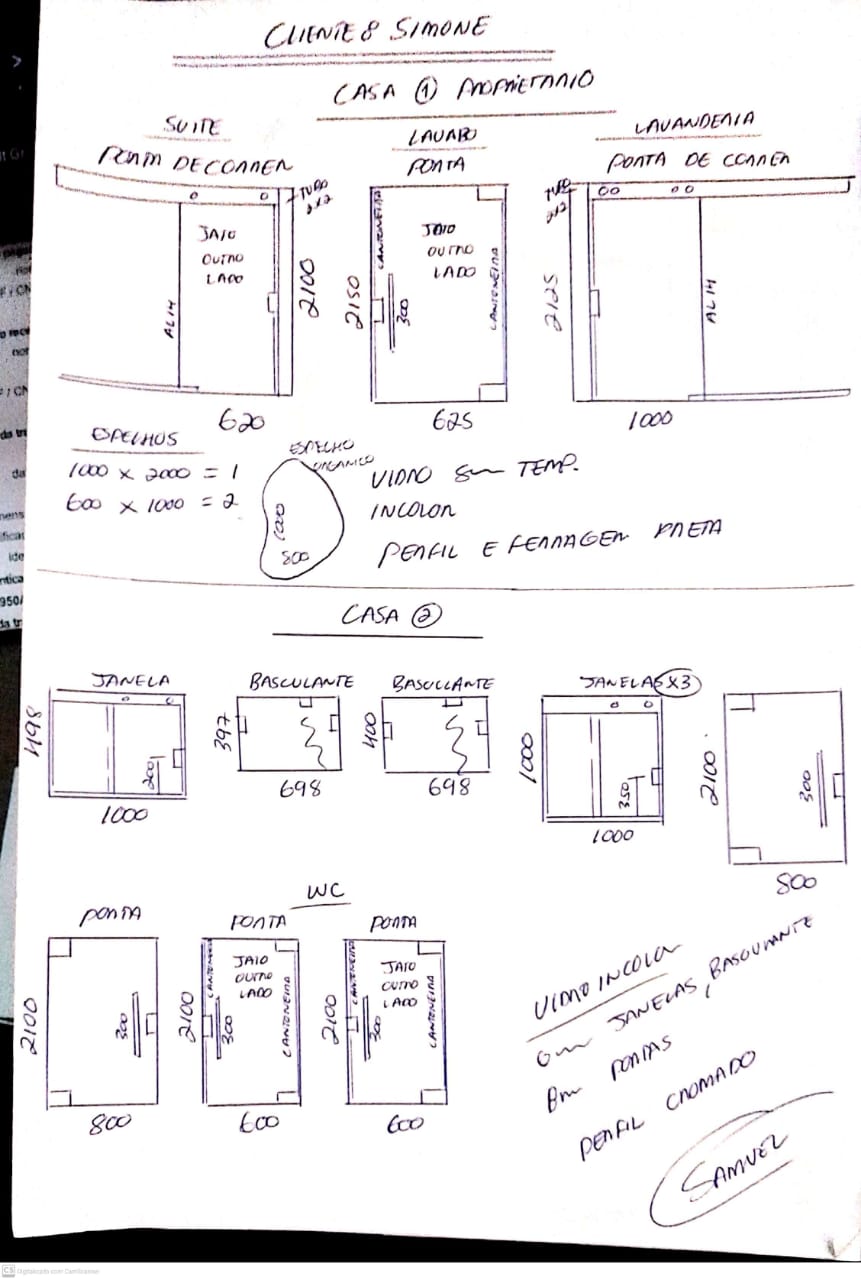 CLIENTE: SIMONE
CASA ① PROPRIETARIO
SUITE
PORTA DE CORRER
TUBO
2x2
JATO
OUTRO
LADO
AL 14
2100
620
LAVABO
PORTA
CANTONEIRA
JATO
OUTRO
LADO
CANTONEIRA
300
2150
625
LAVANDERIA
PORTA DE CORRER
TUBO
2x2
AL 14
2125
1000
ESPELHOS
1000 x 2000 = 1
600 x 1000 = 2
ESPELHO
ORGANICO
1000
800
VIDRO 8mm TEMP.
INCOLOR
PERFIL E FERRAGEM PRETA
CASA ②
JANELA
498
200
1000
BASCULANTE
397
698
BASCULANTE
400
698
JANELAS X3
1000
350
1000
2100
300
800
WC
PORTA
2100
300
800
PORTA
CANTONEIRA
JATO
OUTRO
LADO
CANTONEIRA
2100
300
600
PORTA
CANTONEIRA
JATO
OUTRO
LADO
CANTONEIRA
2100
300
600
VIDRO INCOLOR
6mm JANELAS, BASCULANTE
8mm PORTAS
PERFIL CROMADO
SAMUEL
CS Digitalizada com CamScanner